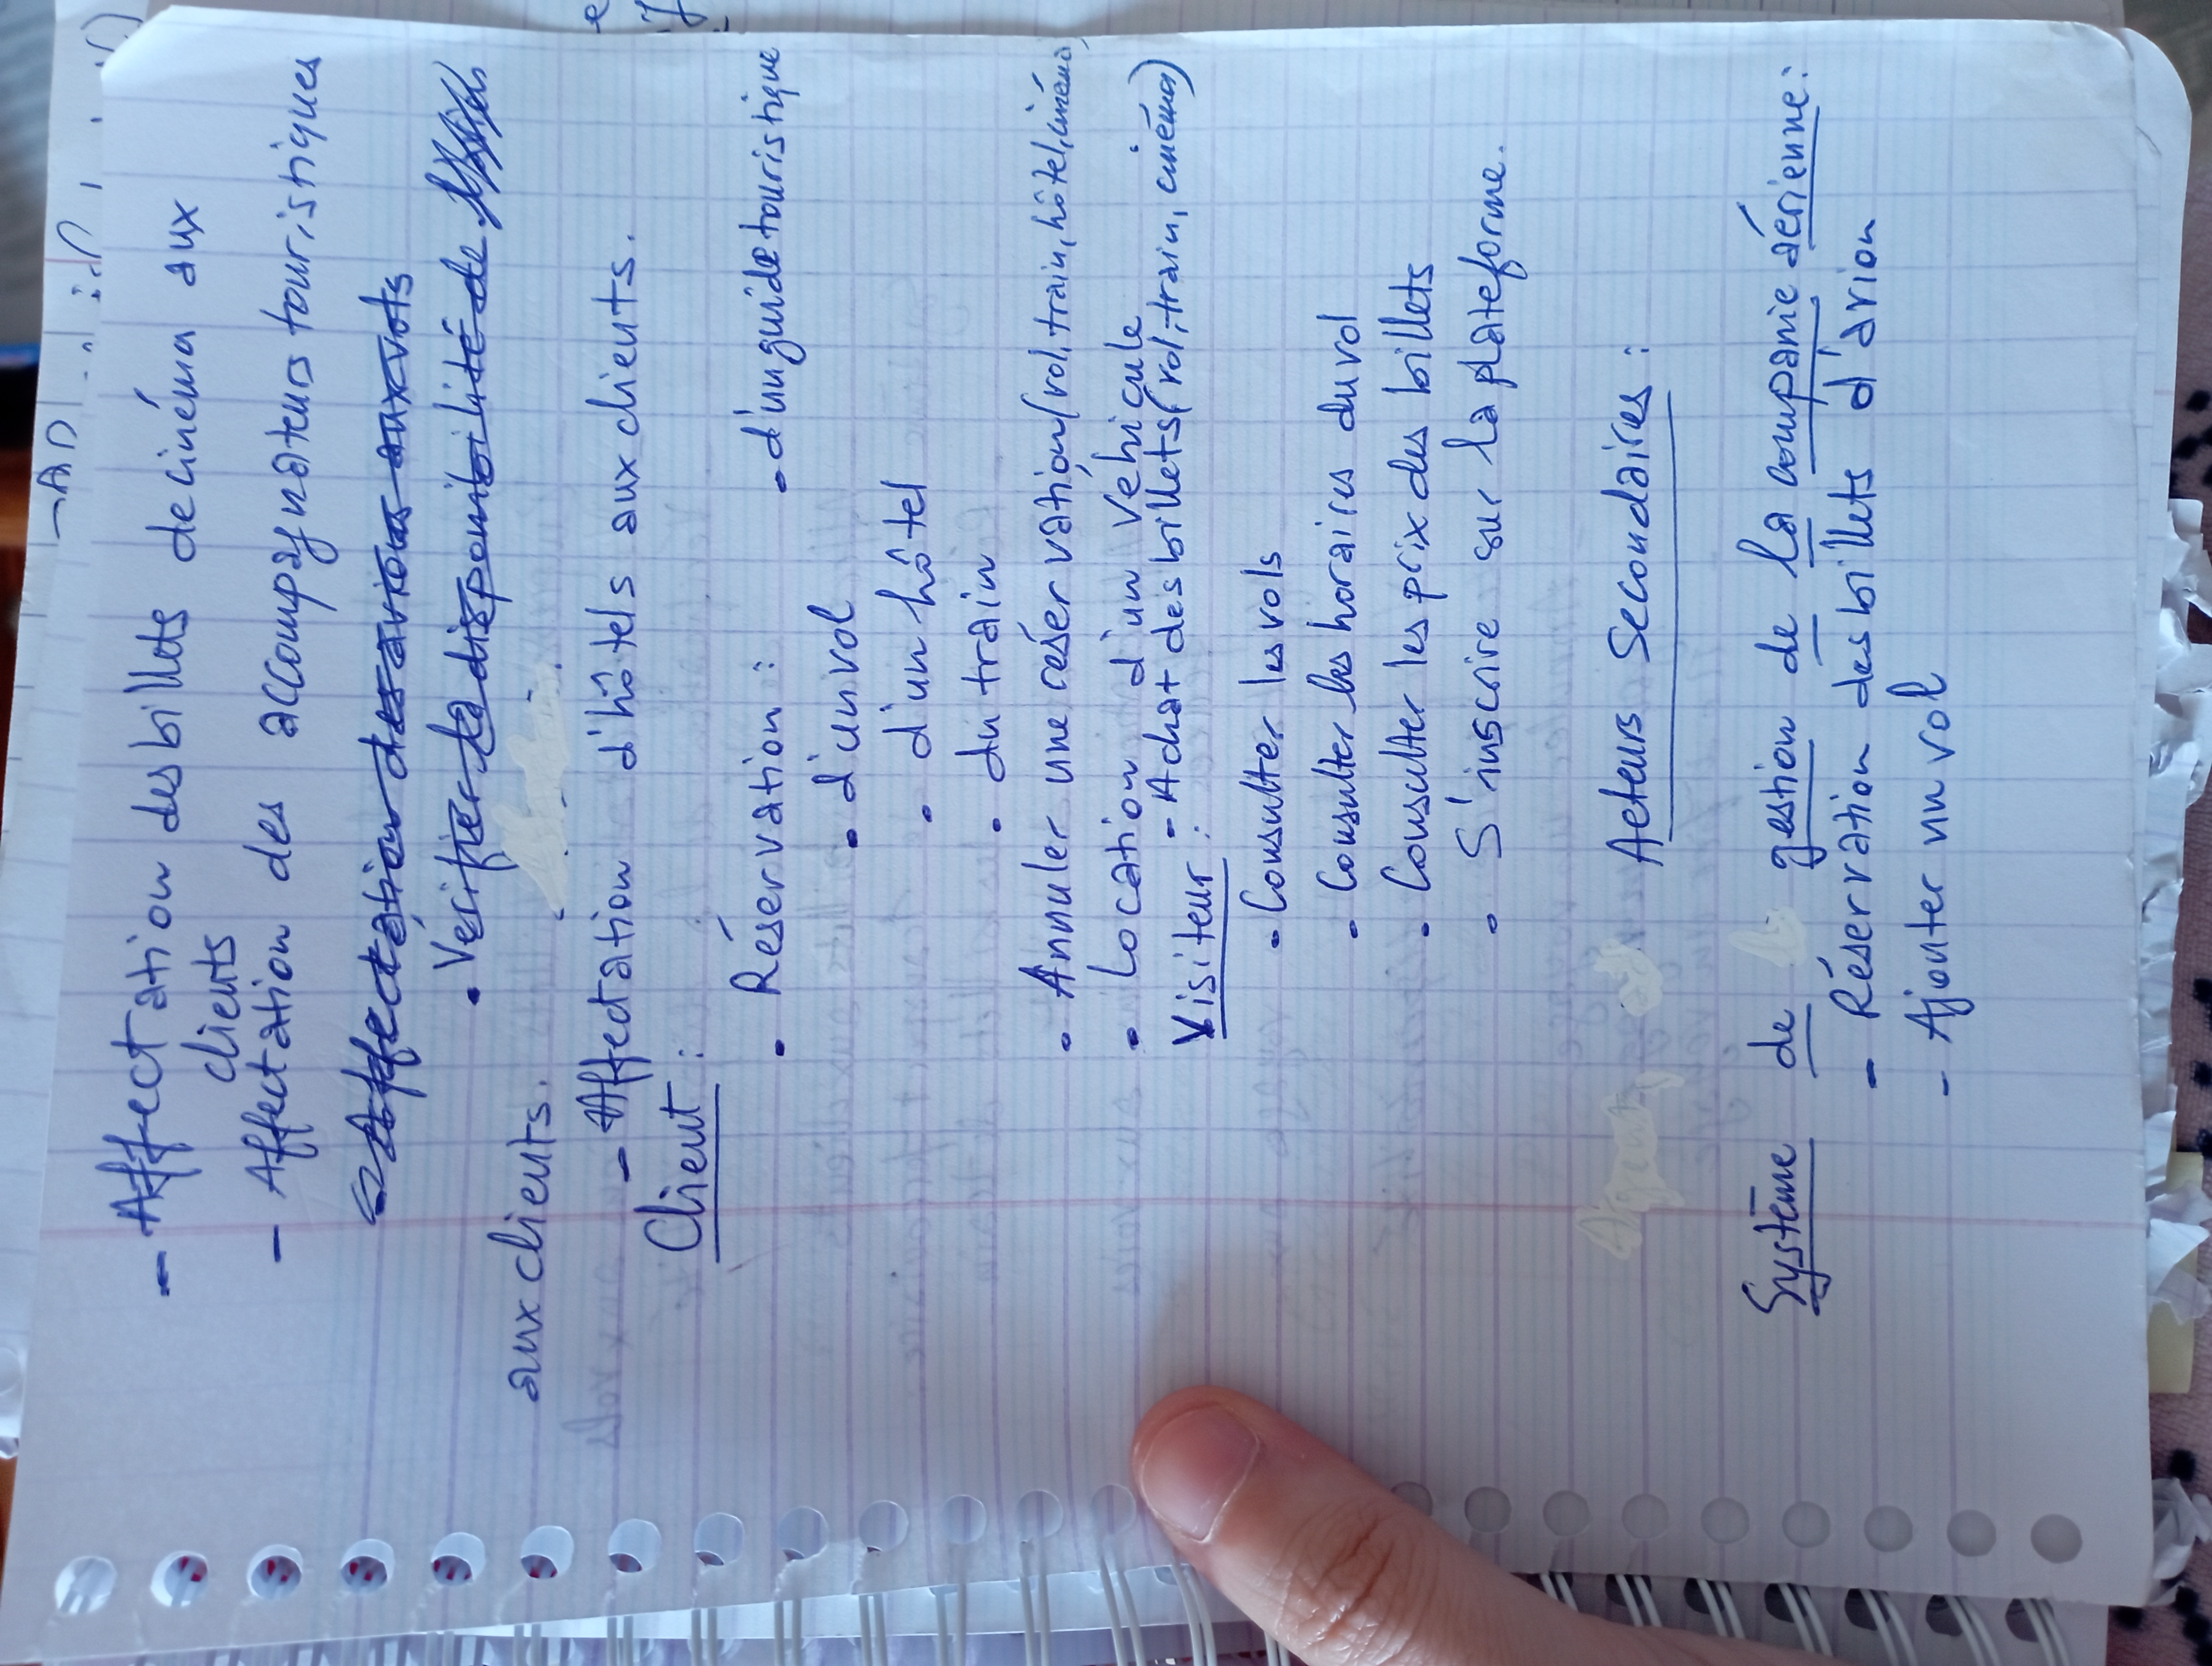 - Affectation des billets de cinéma aux
clients
- Affectation des accompagnateurs touristiques
- Affectation des avions aux vols
. Vérifier la disponibilité de
aux clients.
- Affectation d'hôtels aux clients.
Client :
. Réservation : . d'un guide touristique
. d'un vol
. d'un hôtel
. du train
. Annuler une réservation (vol, train, hôtel, cinéma)
. Location d'un véhicule
- Achat des billets (vol, train, cinéma)
Visiteur :
. Consulter les vols
. Consulter les horaires du vol
. Consulter les prix des billets
. S'inscrire sur la plateforme.
Acteurs Secondaires :
Système de gestion de la companie aérienne :
- Réservation des billets d'avion
- Ajouter un vol